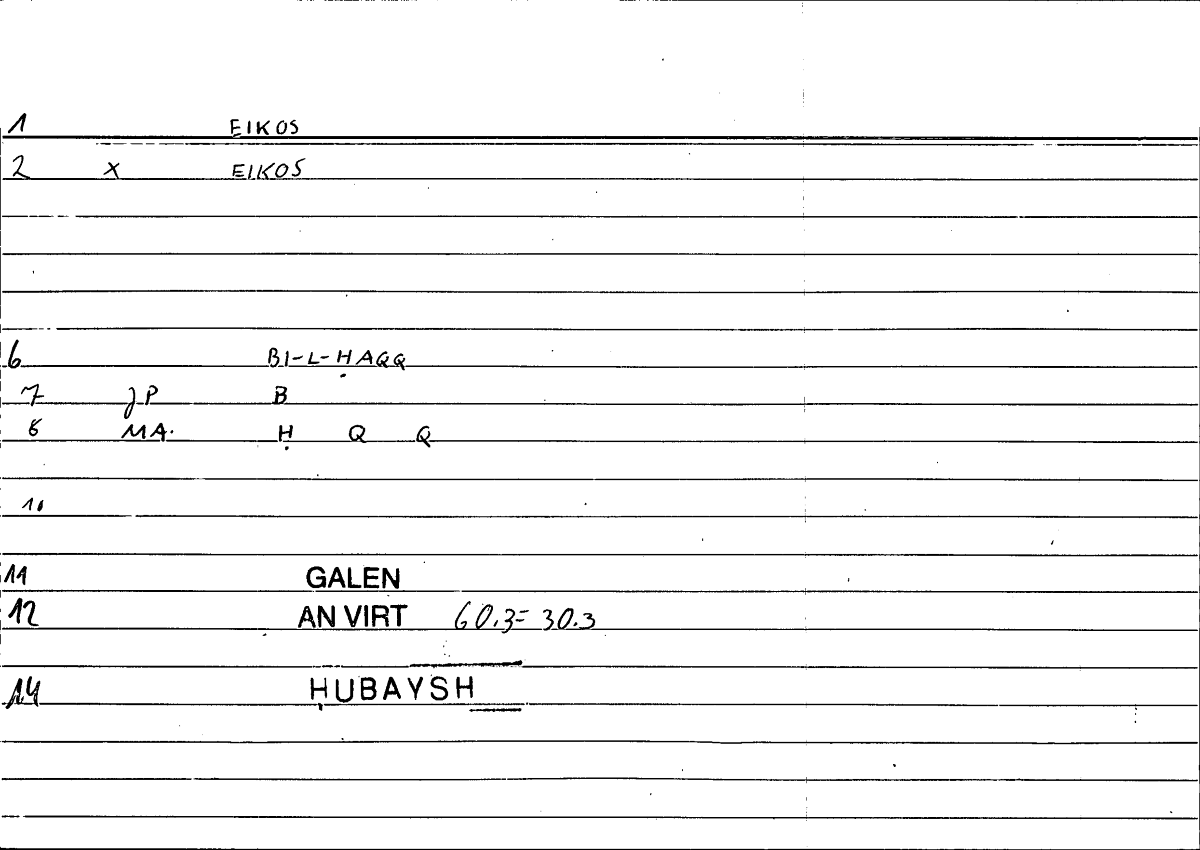 1 EIKOS
2 x EIKOS
6 BI-L-ḤAQQ
7 JP B
8 MA. Ḥ Q Q
10
11 GALEN
12 AN VIRT 60.3= 30.3
14 ḤUBAYSH